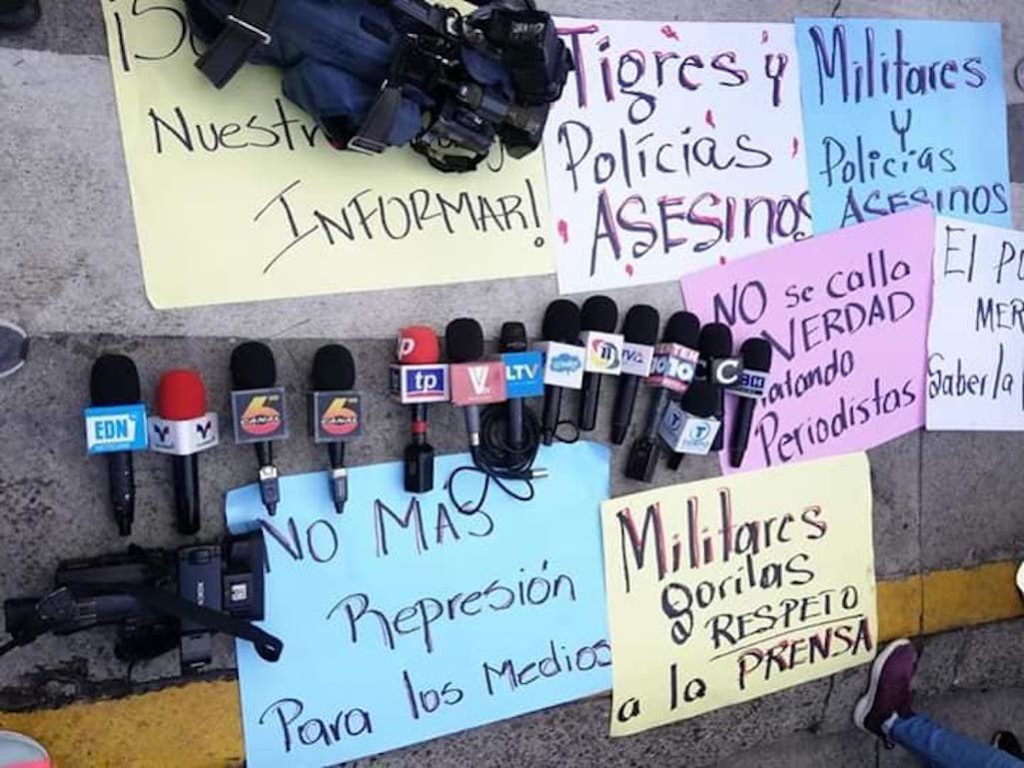 Nuestr
INFORMAR!
Tigres y
Polícías
ASESINOS
Militares
y
Policías
ASESINOS
NO se calla
VERDAD
atando
Periodistas
El P
MER
Saber la
EDN
6
CANAL
6
CANAL
tp
LTV
11
TEN
10
C
NO MAS
Represión
Para los Medios
Militares
gorilas
RESPETO
a la PRENSA